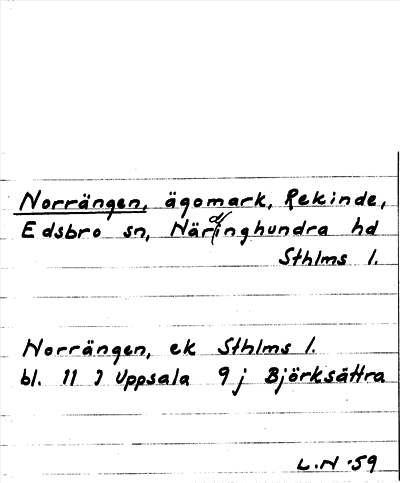 Norrängen, ägomark, Rekinde,
Edsbro sn, Närdinghundra hd
Sthlms l.
Norrängen, ek Sthlms l.
bl. 11 I Uppsala 9 j Björksättra
L.N. 59